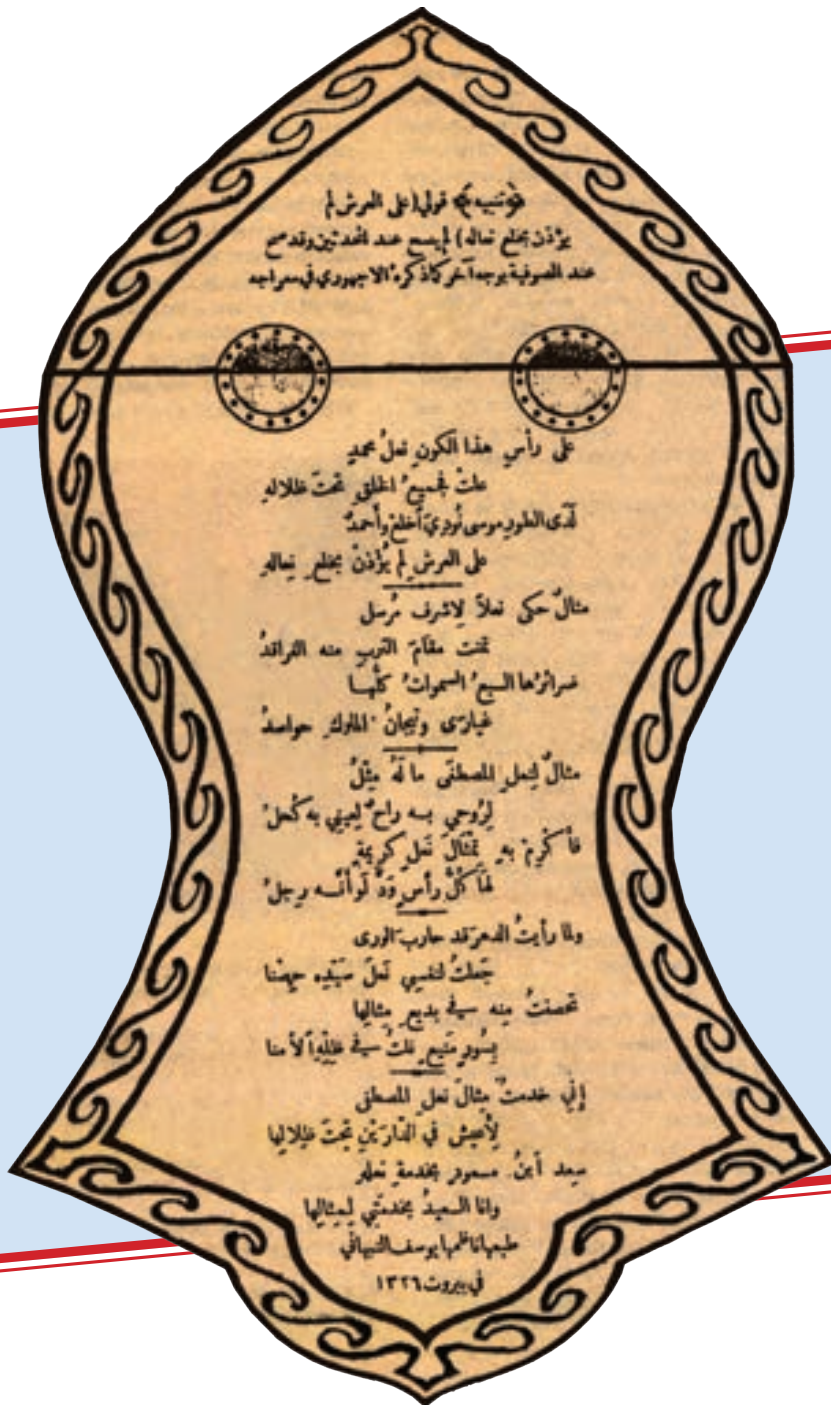 ﴿تنبيه﴾ قولي (على العرش لم
يؤذن بخلع نعاله) لم يصح عند المحدثين وقد صح
عند الصوفية بوجه آخر كما ذكره الاجهوري في معراجه
على رأسِ هذا الكونِ نعلُ محمدٍ
علتْ فجميعُ الخلقِ تحتَ ظلالهِ
لَدَى الطورِ موسى نُودِيَ أخلعْ وأحمدٌ
على العرشِ لم يُؤذَنْ بخلعِ نِعالهِ
مثالٌ حكى نعلاً لِاشرف مُرسل
تمنت مقامَ التربِ منه الفراقدُ
ضرائرُها السبعُ السمواتُ كلُّها
غيارَى وتيجانُ الملوكِ حواسدُ
مثالٌ لِنعلِ المصطفَى ما لَهُ مِثْلُ
لِرُوحي بـه راحٌ لِعيني به كُحلُ
فأكْرِمْ بهِ تمثالَ نعلٍ كريمةٍ
لَهَا كُلُّ رأسٍ وَدَّ لَو أنَّـه رِجلُ
ولما رأيتُ الدهرَ قد حاربَ الورى
جَعلتُ لنفسي نَعلَ سَيِّدِه حِصْنا
تحصنتُ مِنه في بديعِ مِثالِها
بِسُورٍ مَنيعٍ نلتُ في ظِلِّهِ الأَمنا
إنّي خدمتُ مِثالَ نعلِ المصطفى
لِأعيشَ في الدَّارَيْنِ تحتَ ظِلالِها
سعد أبنُ مسعودٍ بخدمةِ نعلهِ
وانا السعيدُ بخدمَتِي لِمِثالِها
طبعها ناظمها يوسف النبهاني
في بيروت ١٣٢٦